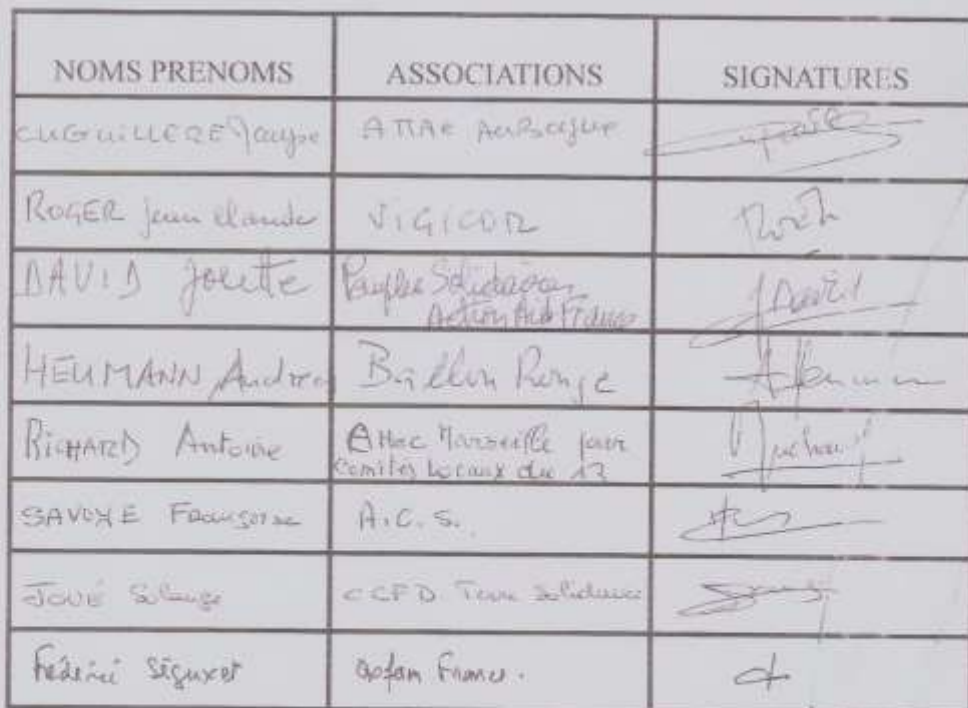 NOMS PRENOMS ASSOCIATIONS SIGNATURES
CUGUILLERE ATTAC AuBagne
ROGER jean claude VIGICOR
DAVID Josette Peuples Solidaires
Action Aid France J David
HEUMANN Andrea Ballon Rouge AHeumann
RICHARD Antoine Attac Marseille pour
Comités Locaux du 13
SAVOYE Françoise A.C.S.
JOUÉ Solange CCFD Terre Solidaire
Oxfam France.